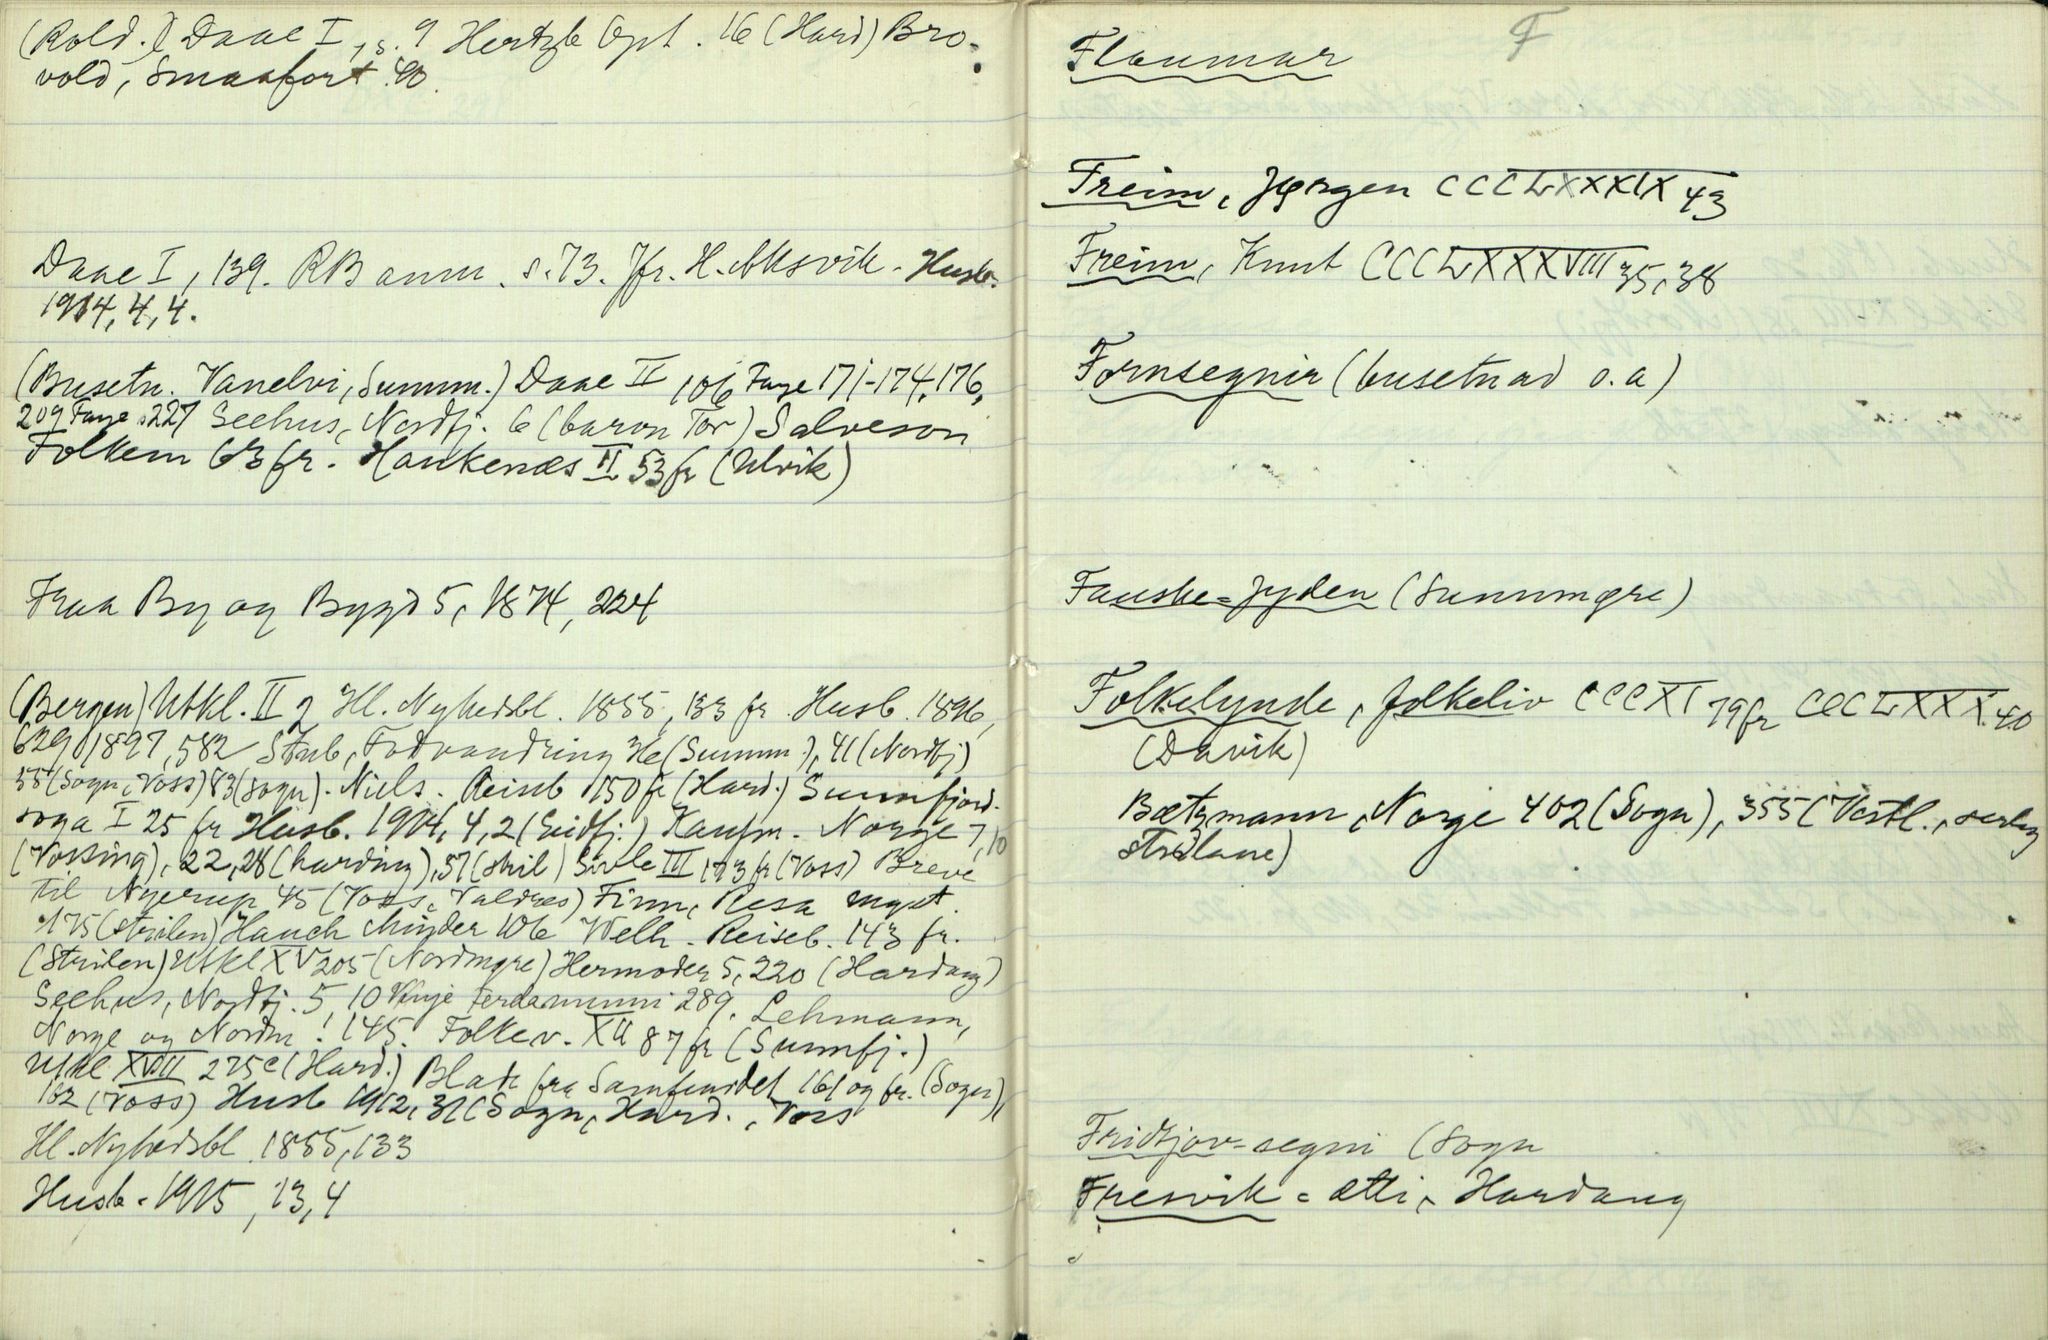 (Rold.) Daae I, s. 9 Hertzb Opt. 16 (Hard) Bro-
vold, Smaafort 40.
Daae I, 139. RB anm. s. 73. Jfr. H. Aksvik. Husb.
1914, 4, 4.
(Busetn. Vanelvi, Sunnm.) Daae II 106 Faye 171-174, 176,
209 Faye 227 Seehus, Nordfj. 6 (baron Tor) Salveson
Folkem 63 fr. Haukenæs II 53 fr (Ulvik)
Fraa By og Bygd 5, 1874, 224
(Bergen) Utkl. II 2 Ill. Nyhedsbl. 1855, 133 fr. Husb. 1896,
629, 1897, 582 Stub, Fodvandring (Sunnm.), 41 (Nordfj)
55 (Sogn, Voss) 83 (Sogn). Niels. Reiseb 150 fr (Hard.) Sunnfjord-
soga I 25 fr Husb. 1904, 4, 2 (Eidfj.) Kaufm. Norge 7, 10
(Vossing), 22, 28 (harding), 57 (stril) Sivle III 173 fr (Voss) Breve
til Nyerup 45 (Voss, Valdres) Finn, Resa
175 (strilen) Hauch Minder 106 Welh. Reiseb. 143 fr.
(Strilen) Utkl XV 205 (Nordmøre) Hermoder 5, 220 (Hardang)
Seehus, Nordfj. 5, 10 Vinje Ferdaminni 289. Lehmann,
Norge og Nordm. 145. Folkev. XII 87 fr (Sunnfj.)
Utkl XVIII 275 (Hard.) Blade fra Samfundet 161 og fr. (Sogn),
162 (Voss) Husb 1912, 31 (Sogn, Hard., Voss
Ill. Nyhedsbl. 1855, 133
Husb. 1915, 13, 4
F
Flaumar
Freim, Jørgen CCCLXXXIX 43
Freim, Knut CCCLXXXVIII 35, 38
Fornsegnir (busetnad o. a)
Fauske-jyden (Sunnmøre)
Folkelynde, folkeliv CCCXI 79 fr CCCLXXX 40
(Davik)
Bætzmann, Norge 402 (Sogn), 355 (Vestl., serleg
strilane)
Fridtjov-segni (Sogn
Fresvik-ætti, Hardang